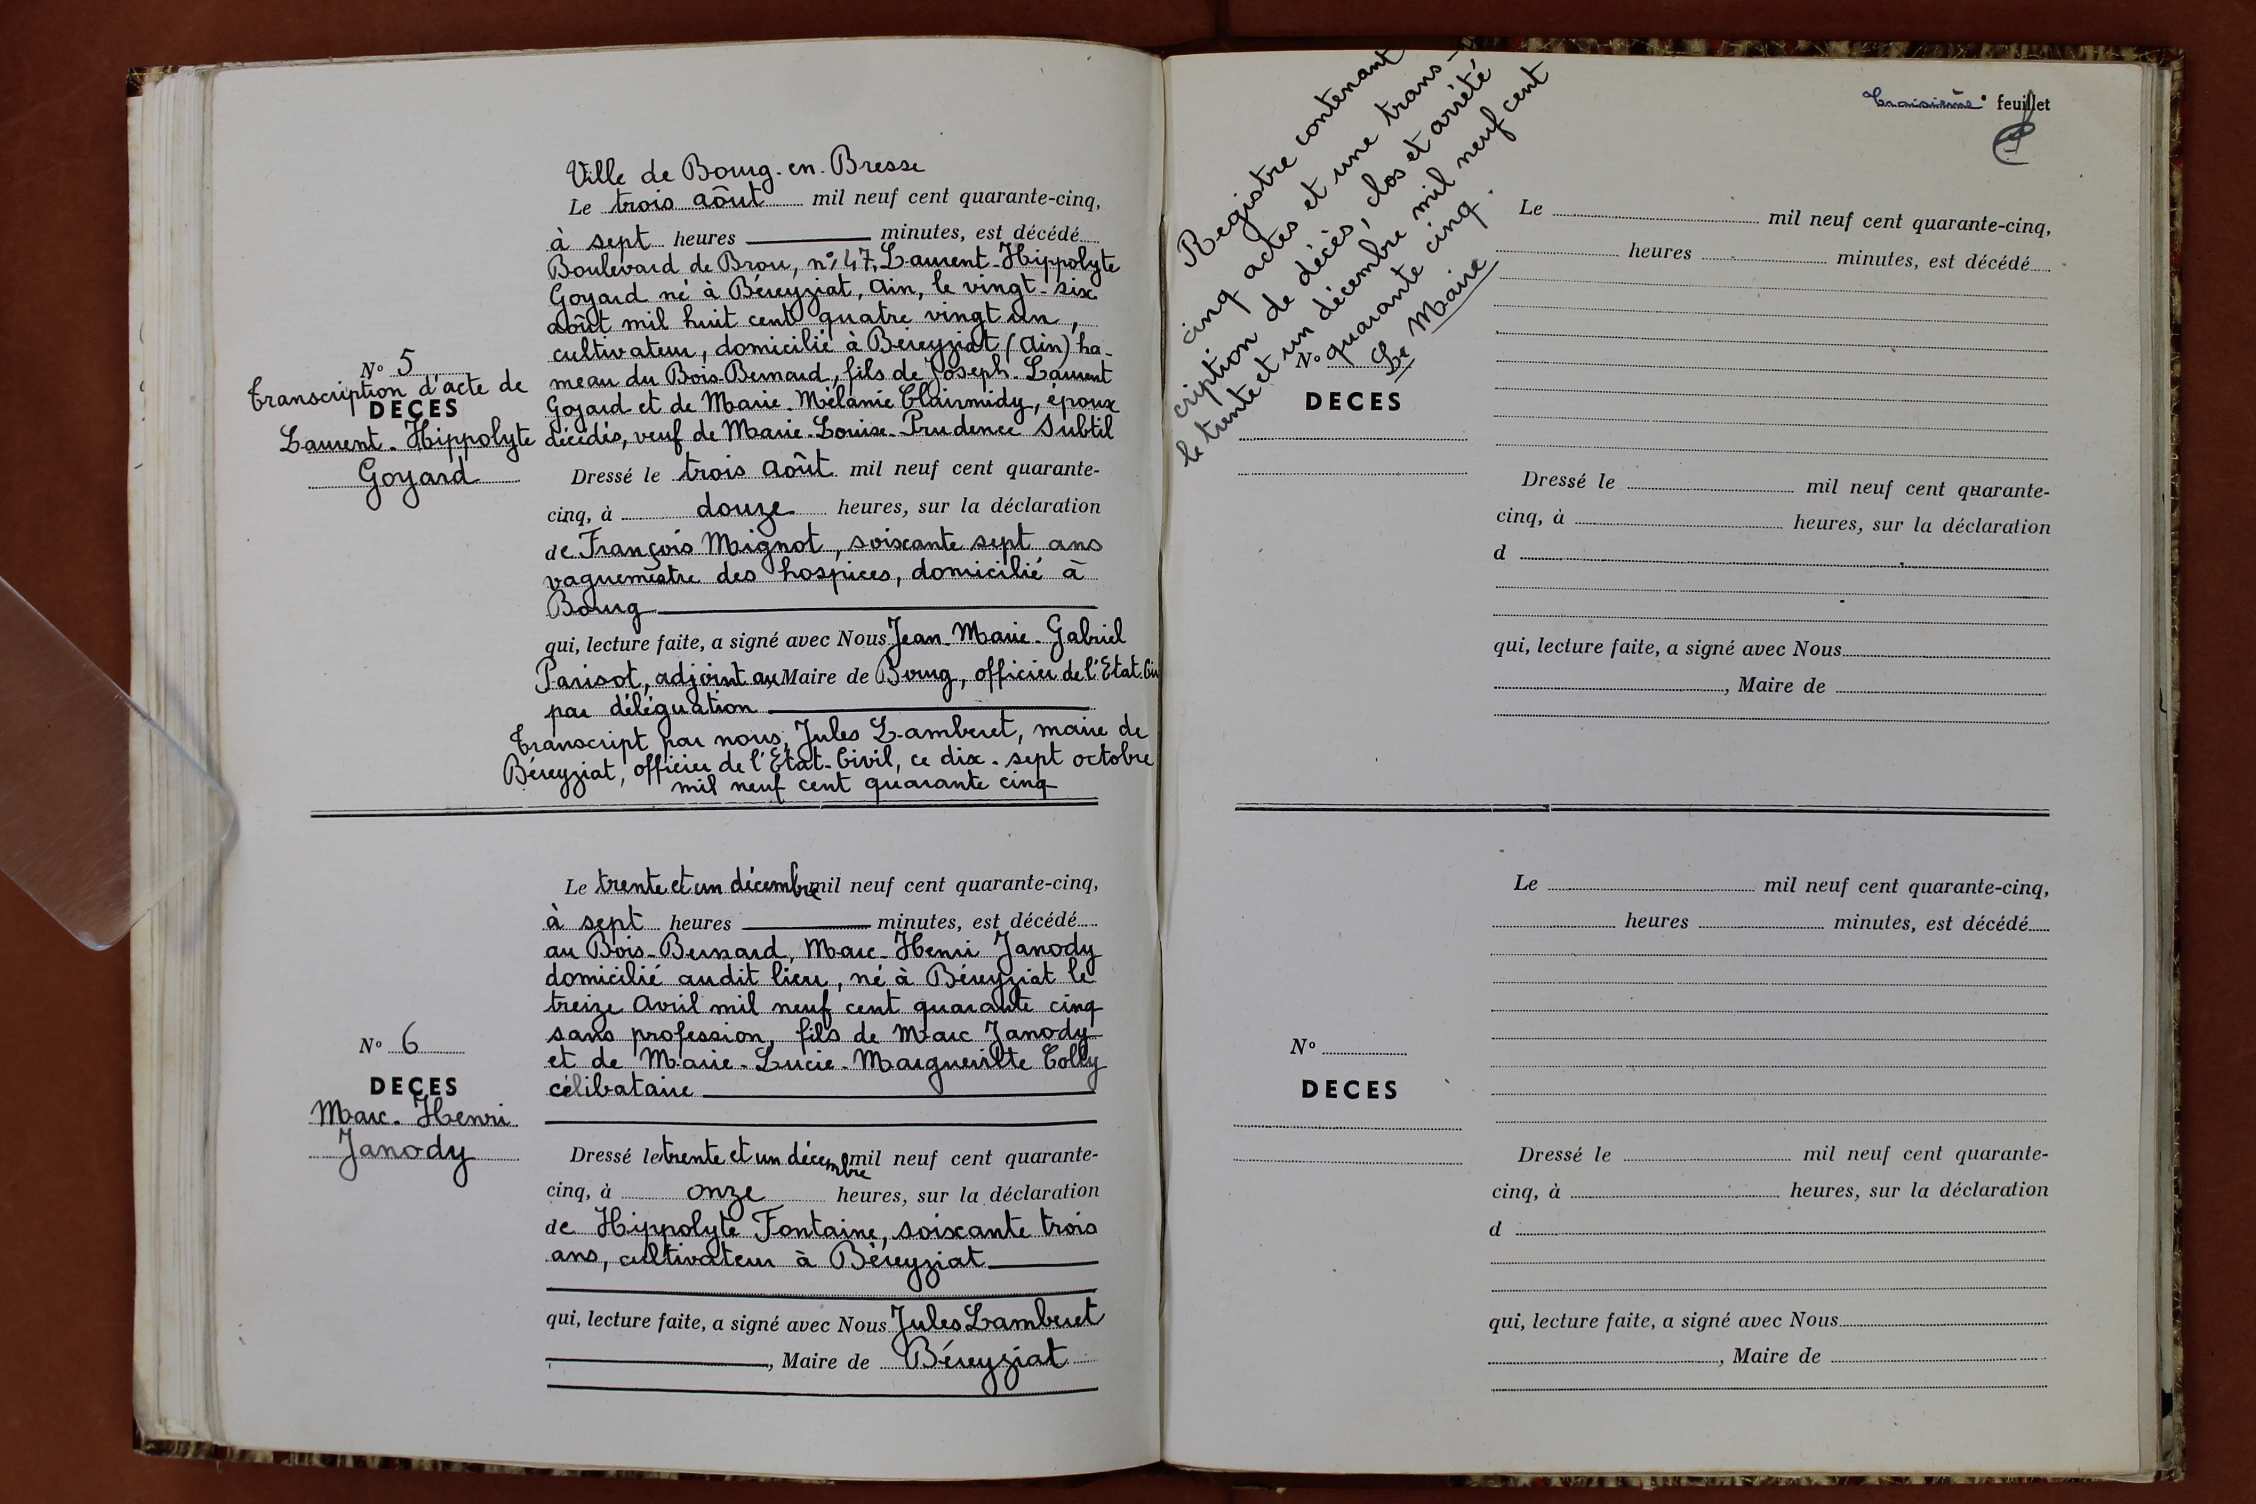 Ville de Bourg-en-Bresse
Le trois août mil neuf cent quarante-cinq,
à sept heures minutes, est décédé
Boulevard de Brou, n° 47, Laurent-Hippolyte
Goyard né à Béreyziat, Ain, le vingt-six
août mil huit cent quatre vingt un,
cultivateur, domicilié à Béreyziat (Ain) ha-
meau du Bois-Bernard, fils de Joseph-Laurent
Goyard et de Marie-Mélanie Clairmidy, époux
décédés, veuf de Marie-Louise-Prudence Subtil
N° 5
Transcription d'acte de
DECES
Laurent-Hippolyte
Goyard
Dressé le trois août mil neuf cent quarante-
cinq, à douze heures, sur la déclaration
de François Mignot, soixante sept ans
vaguemestre des hospices, domicilié à
Bourg
qui, lecture faite, a signé avec Nous Jean-Marie-Gabriel
Parisot, adjoint au Maire de Bourg, officier de l'Etat-Civ
par déléguation
Transcript par nous, Jules Lamberet, maire de
Béreyziat, officier de l'Etat-Civil, ce dix-sept octobre
mil neuf cent quarante cinq
Le trente et un décembre mil neuf cent quarante-cinq,
à sept heures minutes, est décédé
au Bois-Bernard, Marc-Henri Janody
domicilié audit lieu, né à Béreyziat le
treize Avril mil neuf cent quarante cinq
sans profession, fils de Marc Janody
et de Marie-Lucie-Marguerilte Colly
célibataire
N° 6
DECES
Marc-Henri
Janody
Dressé le trente et un décembre mil neuf cent quarante-
cinq, à onze heures, sur la déclaration
de Hippolyte Fontaine, soixante trois
ans, cultivateur à Béreyziat
qui, lecture faite, a signé avec Nous Jules Lamberet
, Maire de Béreyziat
Troisième feuillet
Registre contenant
cinq actes et une trans-
cription de décès, clos et arrêté
le trente et un décembre mil neuf cent
quarante cinq.
Le Maire
Le mil neuf cent quarante-cinq,
heures minutes, est décédé
N°
DECES
Dressé le mil neuf cent quarante-
cinq, à heures, sur la déclaration
d
qui, lecture faite, a signé avec Nous
, Maire de
Le mil neuf cent quarante-cinq,
heures minutes, est décédé
N°
DECES
Dressé le mil neuf cent quarante-
cinq, à heures, sur la déclaration
d
qui, lecture faite, a signé avec Nous
, Maire de